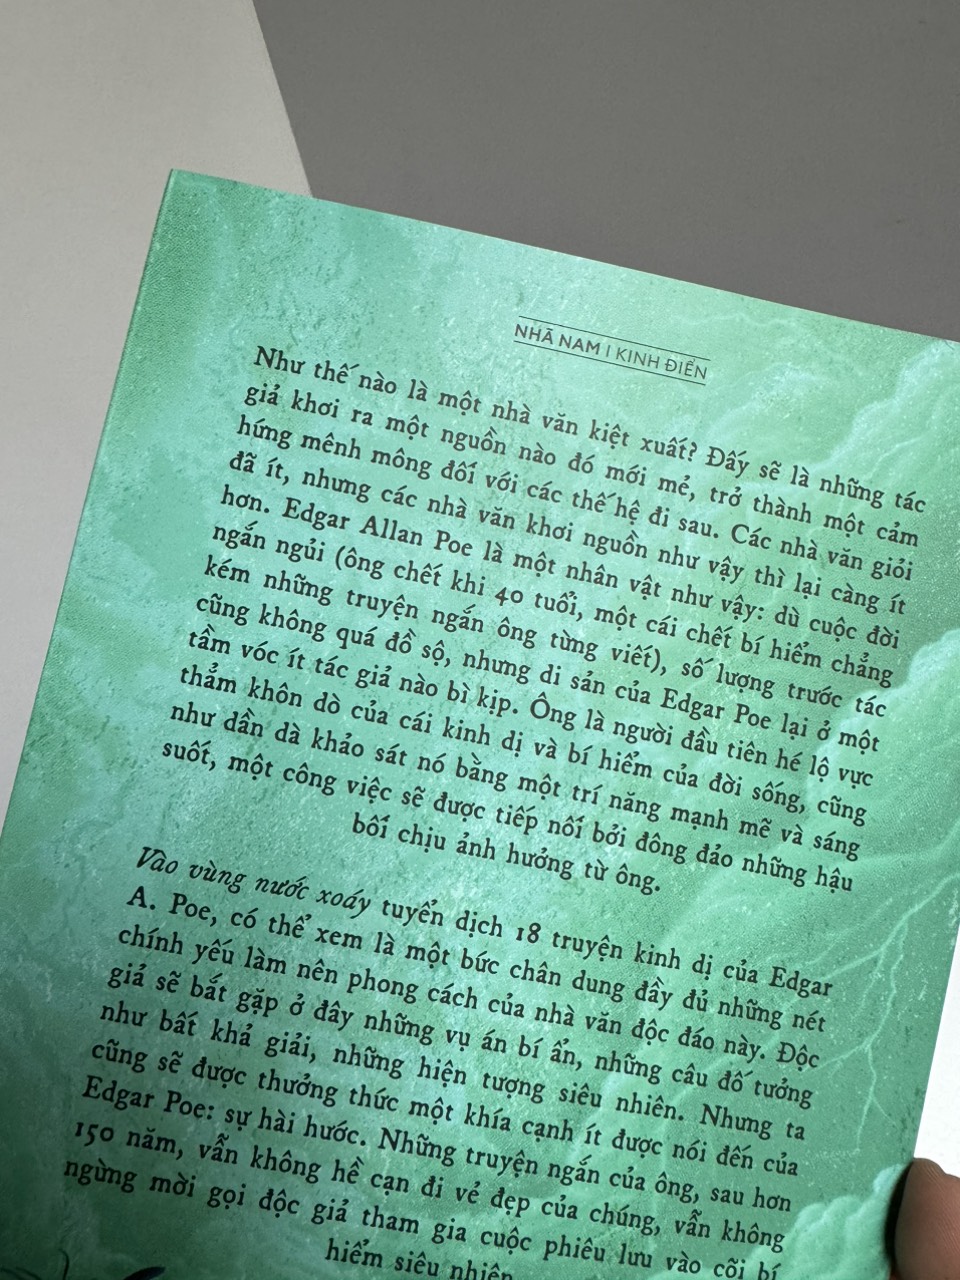 NHÃ NAM | KINH ĐIỂN
Như thế nào là một nhà văn kiệt xuất? Đấy sẽ là những tác
giả khơi ra một nguồn nào đó mới mẻ, trở thành một cảm
hứng mênh mông đối với các thế hệ đi sau. Các nhà văn giỏi
đã ít, nhưng các nhà văn khơi nguồn như vậy thì lại càng ít
hơn. Edgar Allan Poe là một nhân vật như vậy: dù cuộc đời
ngắn ngủi (ông chết khi 40 tuổi, một cái chết bí hiểm chẳng
kém những truyện ngắn ông từng viết), số lượng trước tác
cũng không quá đồ sộ, nhưng di sản của Edgar Poe lại ở một
tầm vóc ít tác giả nào bì kịp. Ông là người đầu tiên hé lộ vực
thẳm khôn dò của cái kinh dị và bí hiểm của đời sống, cũng
như dần dà khảo sát nó bằng một trí năng mạnh mẽ và sáng
suốt, một công việc sẽ được tiếp nối bởi đông đảo những hậu
bối chịu ảnh hưởng từ ông.
Vào vùng nước xoáy tuyển dịch 18 truyện kinh dị của Edgar
A. Poe, có thể xem là một bức chân dung đầy đủ những nét
chính yếu làm nên phong cách của nhà văn độc đáo này. Độc
giả sẽ bắt gặp ở đây những vụ án bí ẩn, những câu đố tưởng
như bất khả giải, những hiện tượng siêu nhiên. Nhưng ta
cũng sẽ được thưởng thức một khía cạnh ít được nói đến của
Edgar Poe: sự hài hước. Những truyện ngắn của ông, sau hơn
150 năm, vẫn không hề cạn đi vẻ đẹp của chúng, vẫn không
ngừng mời gọi độc giả tham gia cuộc phiêu lưu vào cõi bí
hiểm siêu nhiên